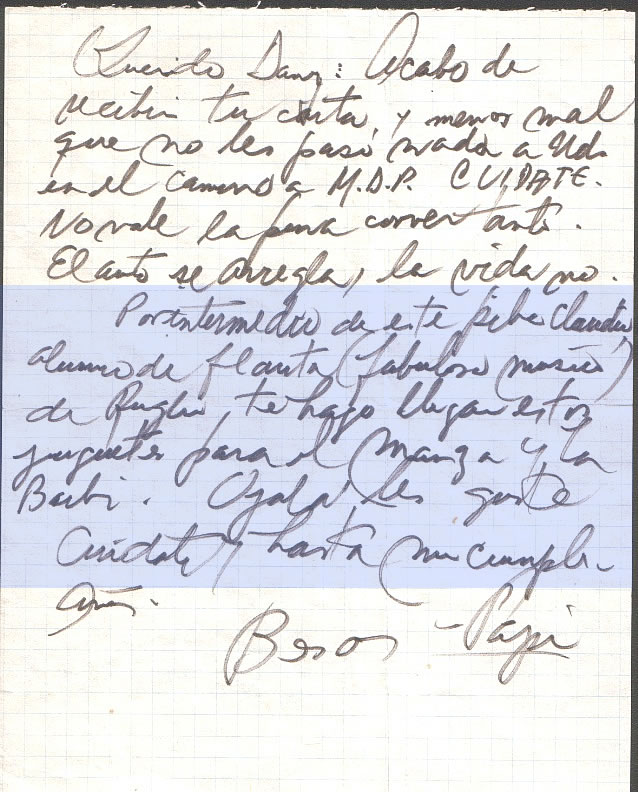 Querido Dany: Acabo de
recibir tu carta, y menos mal
que no les pasó nada a Uds.
en el camino a M.D.P. CUIDATE.
No vale la pena correr tanto.
El auto se arregla, la vida no.
Por intermedio de este pibe Claudio,
alumno de flauta (fabuloso músico)
de te hago llegar estos
juguetes para el manza y la
Barbi. Ojalá les guste
Cuidate y hasta mi cumple-
años.
Besos - Papi